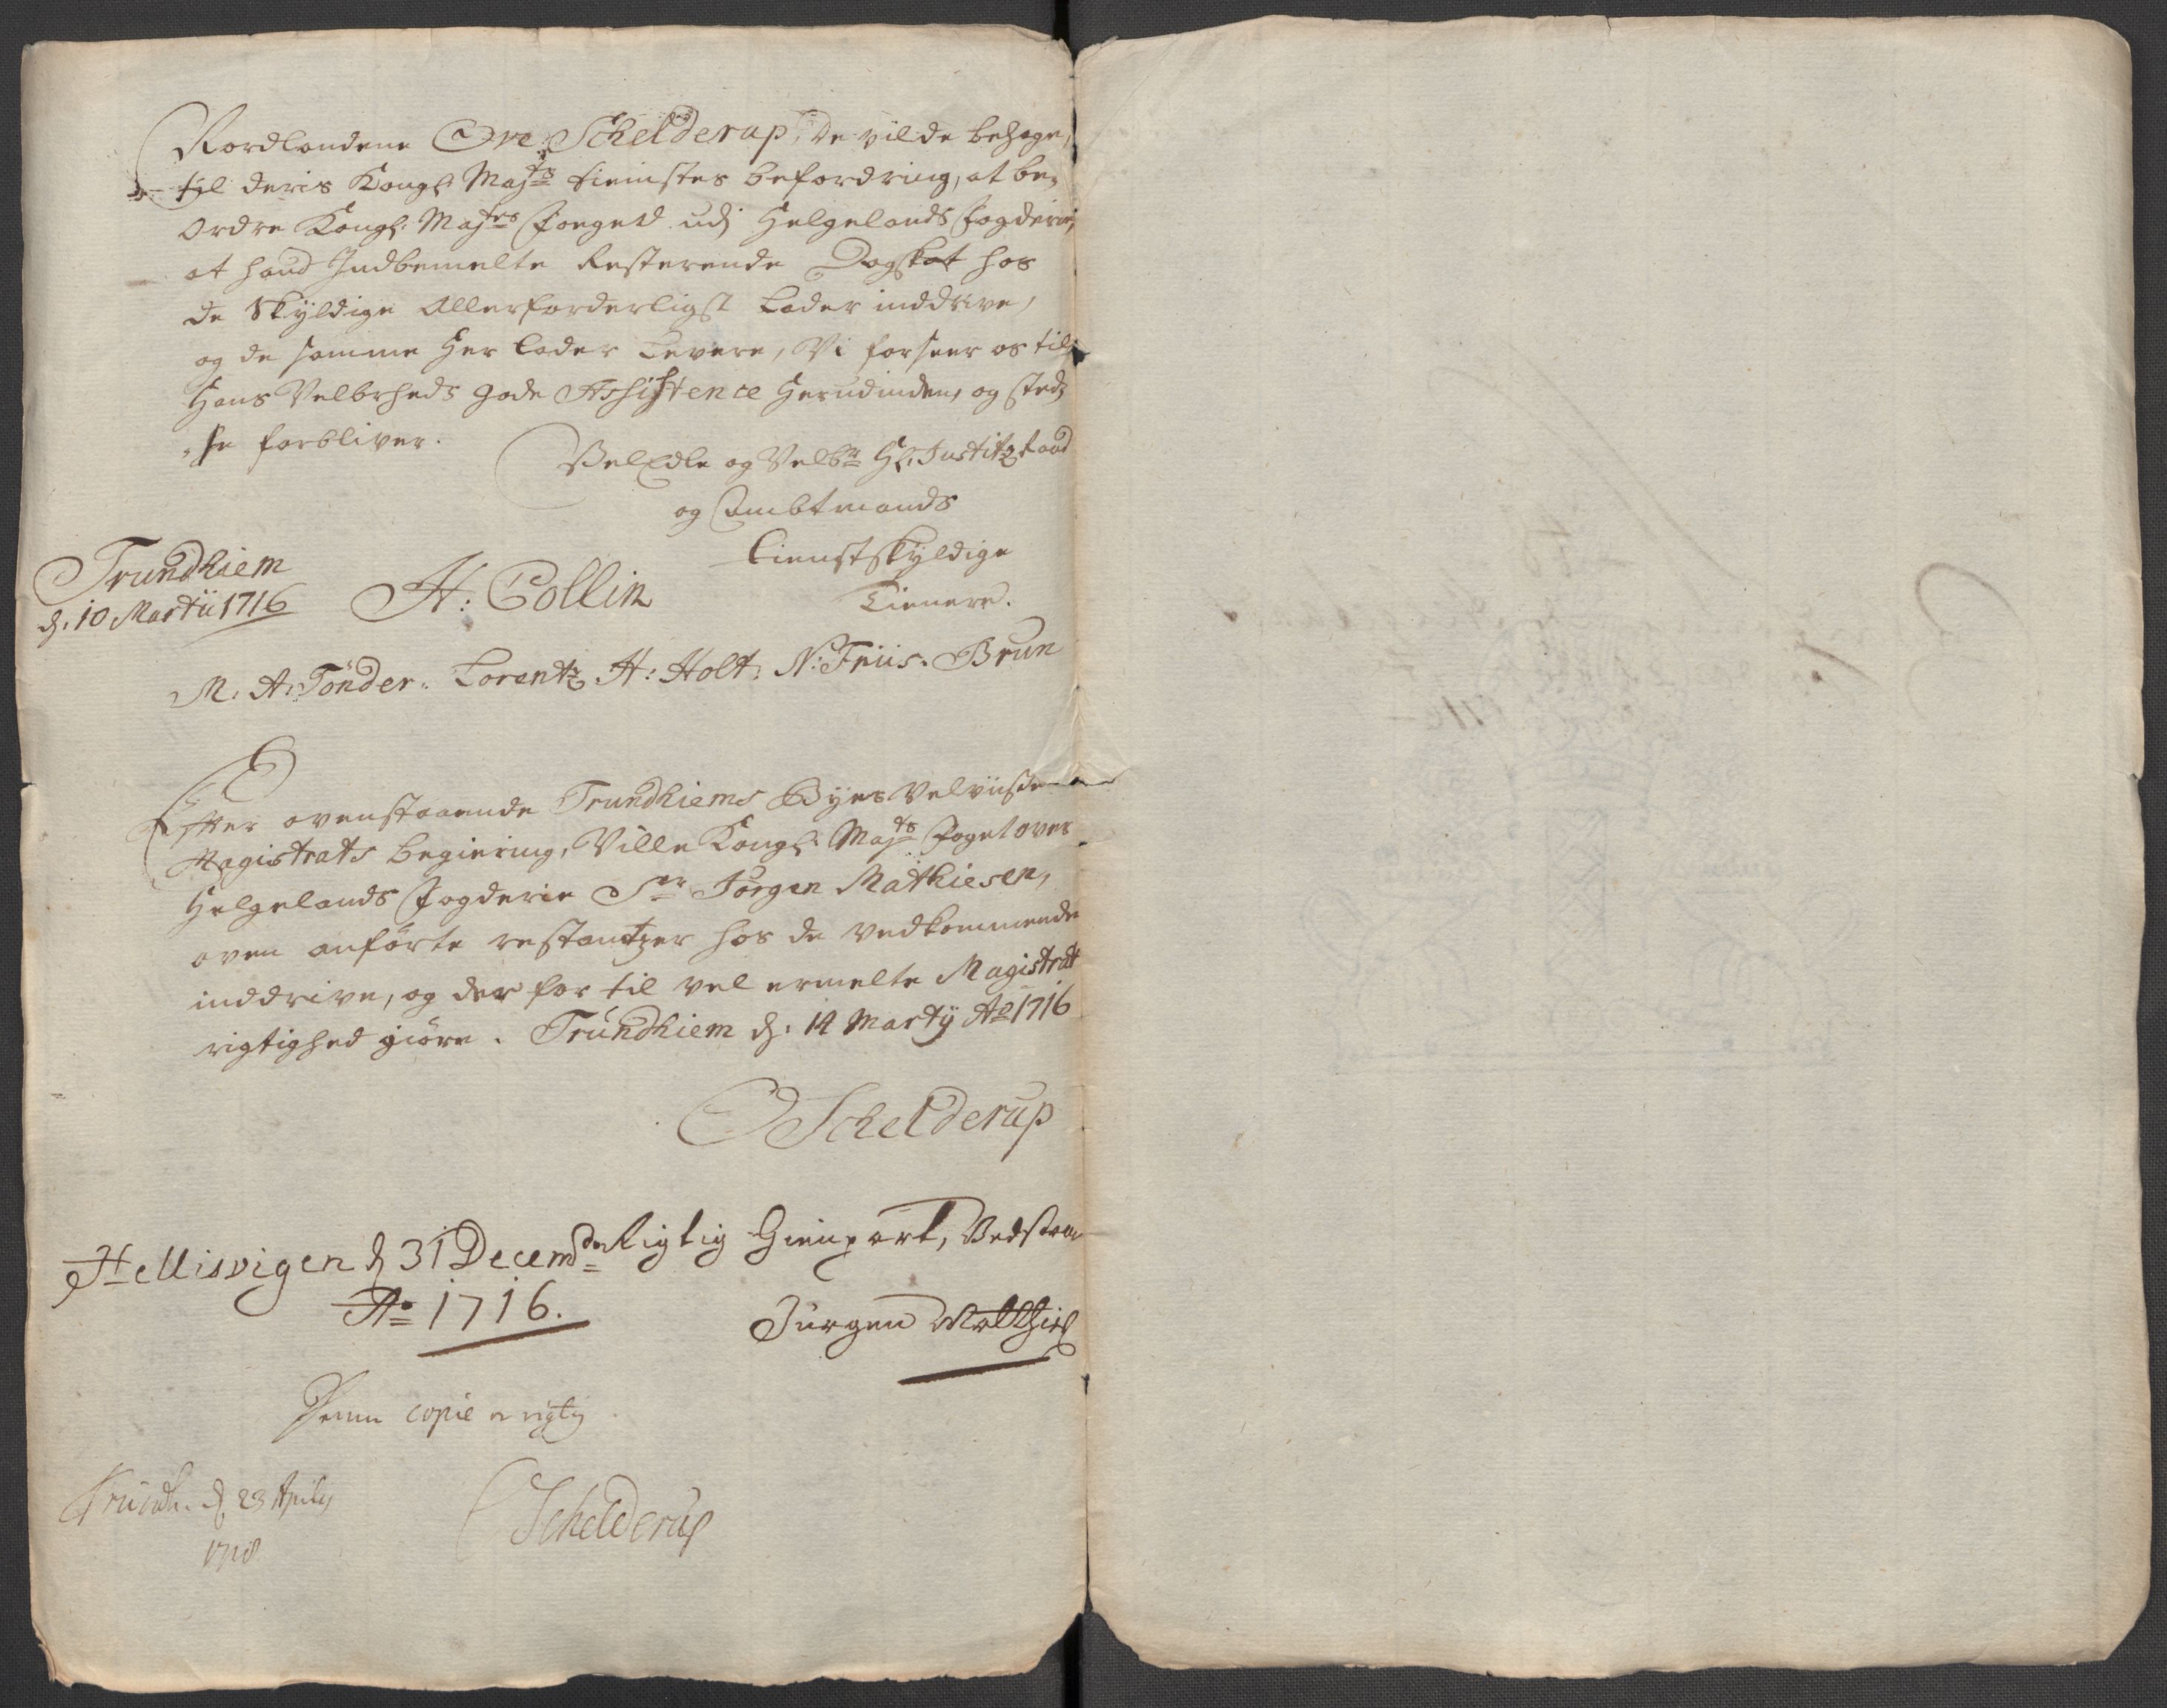 Nordlandene Ove Schelderup, de vilde behage,
til deris Kongl: Majts tienistes befordring, at be-
ordre Kongl: Majts Foeget udj Helgelands Fogderie,
at hand Indbemelte Resterende Dagskat hos
de Skÿldige Allerforderligst Lader inddrive,
og de samme her lader Levere, Vi forseer os til
Hans Velbrheds gode Assistence herudinden, og stedz
se forbliver.
VelEdle og Velbr Hr: Justitz Raad
og Ambtmands
Tienstskÿldige
Tienere.
Trundhiem
d: 10 Martii 1716
H: Collin
M. A: Tönder. Lorentz H: Holt. N: Friis. Brun
Efter ovenstaaende Trundhiems Byes Velviise
Magistrats begiering, Ville Kongl: Majts Foget over
Helgelands Fogderie Sr Jörgen Mathiesen,
oven anförte restantzer hos de vedkommende
inddrive, og der for til vel ermelte Magistrat
rigtighed giöre. Trundhiem d: 14 Martÿ Ao 1716
O Schelderup
Hellisvigen d 31 Decembr Rigtig Gienpart, Vedstaar
Ao 1716.
Jürgen Matthies
Denne copie er rigtig
Trundh. d 23 Aprily
1718
O Schelderup